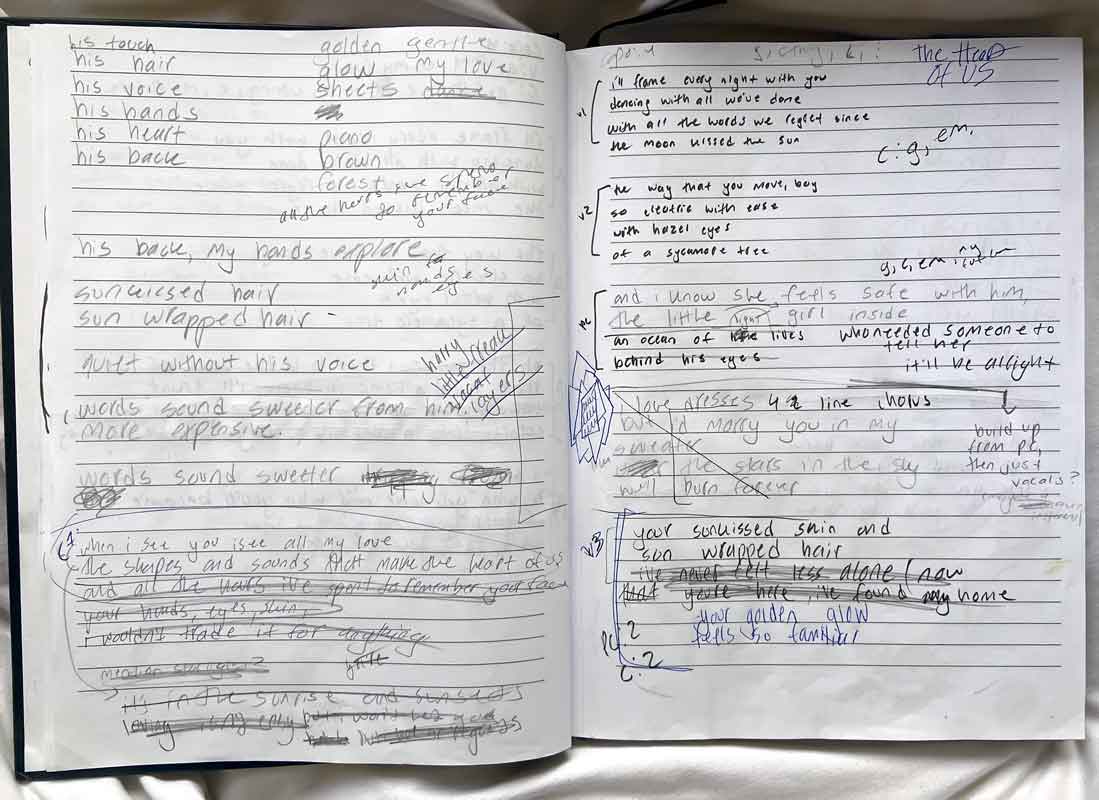 his touch
his hair
his voice
his hands
his heart
his back
golden gentle
glow my love
sheets dance
piano
brown
forest
all the hours ive spend
to remember
your face
his back, my hands explore
skin
hands es
ey
sunkissed hair
sun wrapped hair -
quiet without his voice
harry
little freak
vocal
layers
words sound sweeter from him
more expensive.
words sound sweeter
c:
when i see you i see all my love
the shapes and sounds that make the heart of us
and all the hours i've spent to remember your face
your hands, eyes, skin,
i wouldn't trade it for anything
mention starlight?
it's in the sunrise and sunsets
loving is my only
the heart
of us
v1
i'll frame every night with you
dancing with all we've done
with all the words we neglect since
the moon kissed the sun
c:g, em,
v2
the way that you move, boy
so electric with ease
with hazel eyes
of a sycamore tree
g, c, em,
pc
and i know she feels safe with him,
the little girl inside
night
an ocean of lives who needed someone to
tell her
behind his eyes it'll be alright
i love dresses 4 line chorus
but i'd marry you in my
sweater
the stars in the sky
will burn forever
build up
from pc,
then just
vocals?
v3
your sunkissed skin and
sun wrapped hair
i've never felt less alone / now
that you're here, i've found my home
your golden glow
feels so familiar
pc. 2
c. 2